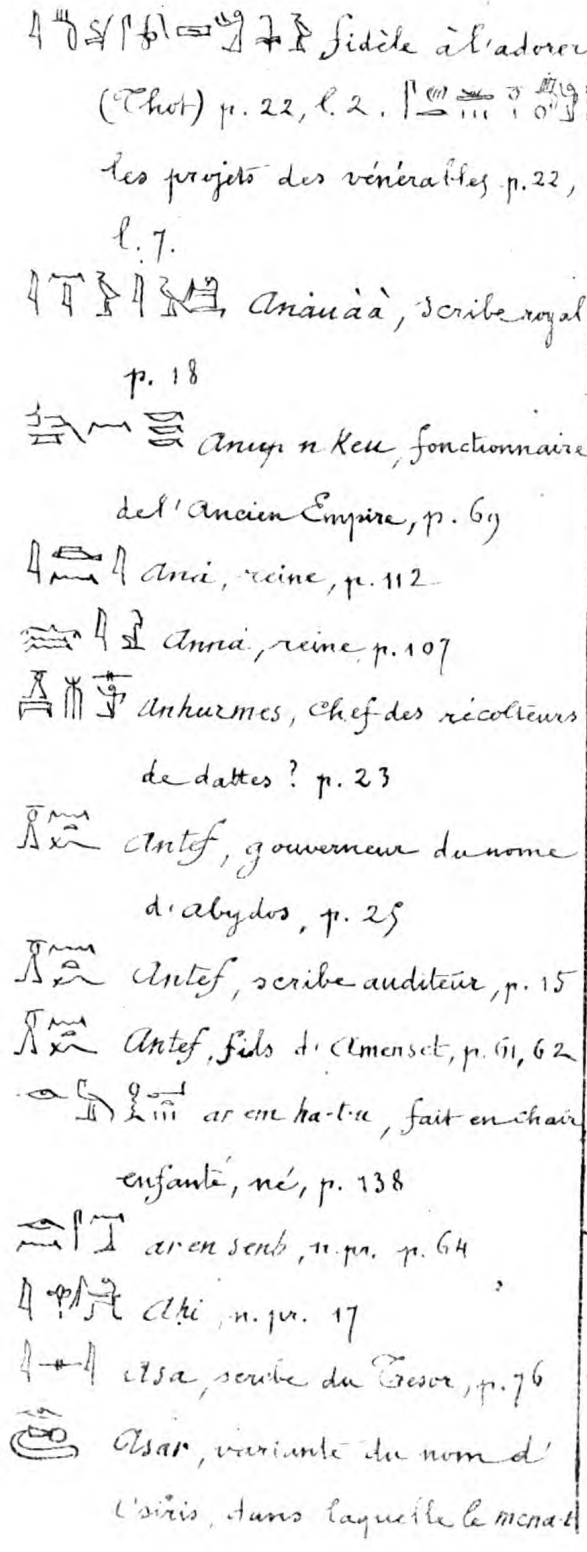 fidèle à l'adorer
(Thot) p. 22, l. 2.
les projets des vénérables p. 22,
l. 7.
Anàuàà, scribe royal
p. 18
Anup n Keu, fonctionnaire
de l'Ancien Empire, p. 69
Anà, reine, p. 112
Annà, reine p. 107
Anhurmes, chef des récolteurs
de dattes ? p. 23
Antef, gouverneur du nome
d'Abydos, p. 25
Antef, scribe auditeur, p. 15
Antef, fils d'Amenset, p. 61, 62
ar em ha-t-u, fait en chair
enfanté, né, p. 138
ar en senb, n. pr. p. 64
Ahi, n. pr. 17
Asa, scribe du Trésor, p. 76
Asar, variante du nom d'
Osiris, dans laquelle le mena-t